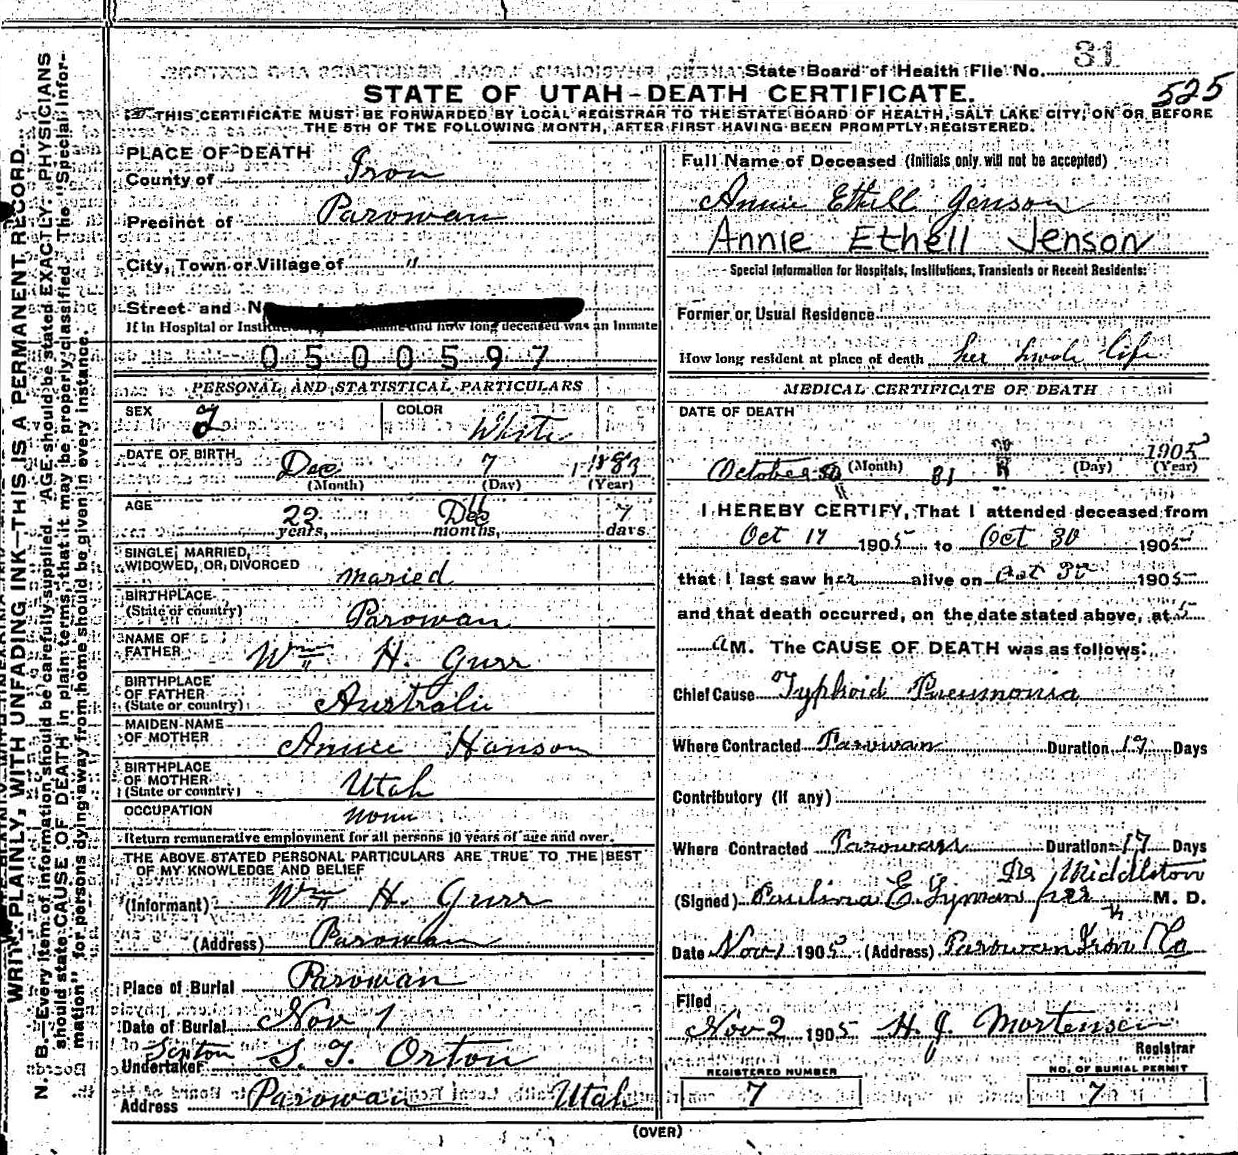 State Board of Health File No. 31
525
STATE OF UTAH-DEATH CERTIFICATE.
THIS CERTIFICATE MUST BE FORWARDED BY LOCAL REGISTRAR TO THE STATE BOARD OF HEALTH, SALT LAKE CITY, ON OR BEFORE
THE 5TH OF THE FOLLOWING MONTH, AFTER FIRST HAVING BEEN PROMPTLY REGISTERED.
WRITE PLAINLY, WITH UNFADING INK—THIS IS A PERMANENT RECORD.
N. B.—Every item of information should be carefully supplied. AGE should be stated EXACTLY. PHYSICIANS
should state CAUSE OF DEATH in plain terms, that it may be properly classified. The "Special Infor-
mation" for persons dying away from home should be given in every instance.
PLACE OF DEATH
County of Iron
Precinct of Parowan
City, Town or Village of "
Street and N
If in Hospital or and how long deceased was an Inmate
0500597
PERSONAL AND STATISTICAL PARTICULARS
SEX F
COLOR White
DATE OF BIRTH Dec 7 1883
(Month) (Day) (Year)
AGE 22 years, Dec months, 7 days
SINGLE, MARRIED,
WIDOWED, OR DIVORCED maried
BIRTHPLACE
(State or country) Parowan
NAME OF
FATHER Wm H. Gurr
BIRTHPLACE
OF FATHER
(State or country) Australia
MAIDEN NAME
OF MOTHER Annie Hanson
BIRTHPLACE
OF MOTHER
(State or country) Utah
OCCUPATION none
Return remunerative employment for all persons 10 years of age and over.
THE ABOVE STATED PERSONAL PARTICULARS ARE TRUE TO THE BEST
OF MY KNOWLEDGE AND BELIEF
(Informant) Wm H. Gurr
(Address) Parowan
Place of Burial Parowan
Date of Burial Nov 1
Sexton
Undertaker S. T. Orton
Address Parowan Utah
Full Name of Deceased (Initials only will not be accepted)
Annie Ethell Jenson
Annie Ethell Jenson
Special Information for Hospitals, Institutions, Transients or Recent Residents:
Former or Usual Residence
How long resident at place of death her hwole life
MEDICAL CERTIFICATE OF DEATH
DATE OF DEATH
October 31 1905
(Month) (Day) (Year)
I HEREBY CERTIFY, That I attended deceased from
Oct 17 1905 to Oct 30 1905
that I last saw her alive on Oct 30 1905
and that death occurred, on the date stated above, at 5
a M. The CAUSE OF DEATH was as follows:
Chief Cause Typhoid Pneumonia
Where Contracted Parowan Duration 17 Days
Contributory (if any)
Where Contracted Parowan Duration 17 Days
Dr Middleton
(Signed) Paulina E. Lyman per M. D.
Date Nov 1 1905 (Address) Parowan Iron Co
Filed
Nov 2 1905 H. J. Mortensen
Registrar
REGISTERED NUMBER
7
NO. OF BURIAL PERMIT
7
(OVER)